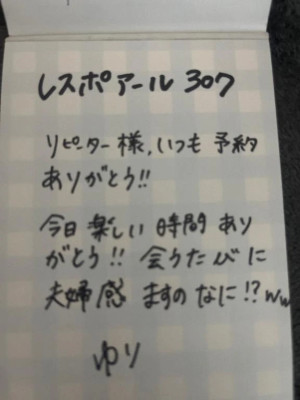 レスポアール 307
リピーター様、いつも予約
ありがとう!!
今日楽しい時間あり
がとう!! 会うたびに
夫婦感ますのなに!?ww
ゆり